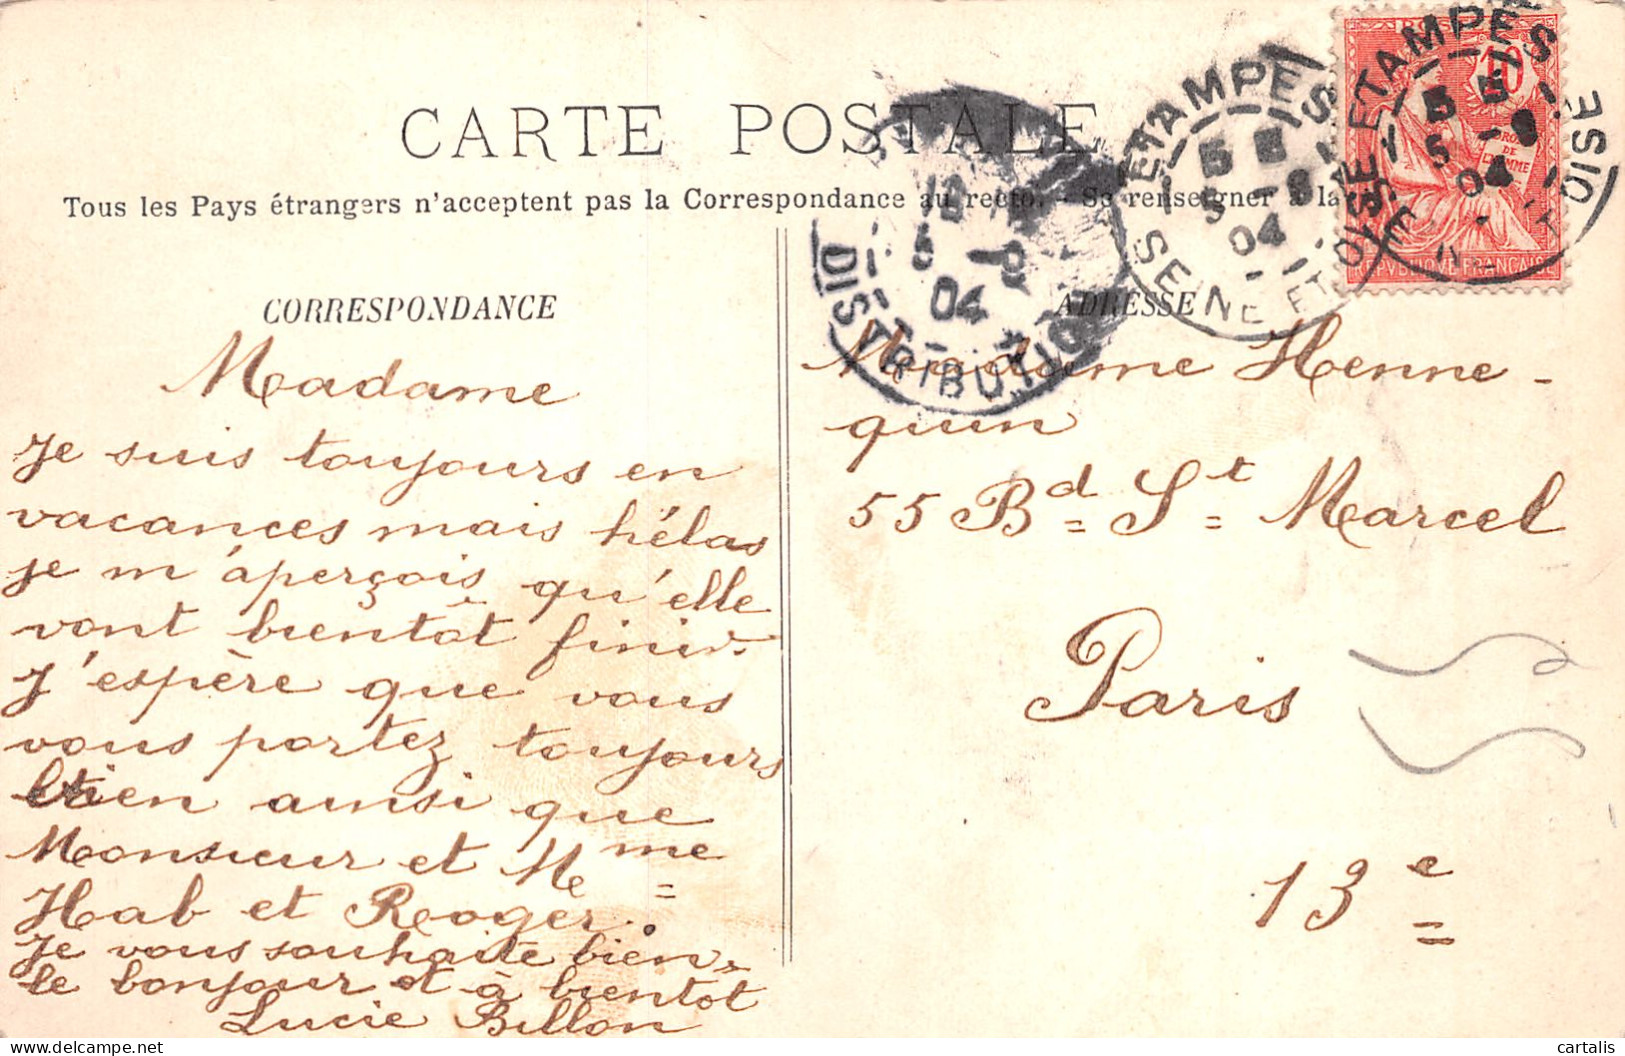 CARTE POSTALE
Tous les Pays étrangers n'acceptent pas la Correspondance au recto. - Se renseigner à la
CORRESPONDANCE
Madame
Je suis toujours en
vacances mais hélas
je m'aperçois qu'elle
vont bientôt finir.
J'espère que vous
vous portez toujours
bien ainsi que
Monsieur et Mme
Hab et Roger.
Je vous souhaite bien
le bonjour et à bientôt
Lucie Billon
ADRESSE
Madame Henne-
quin
55 Bd St Marcel
Paris
13e
ETAMPES
5 E
5 -9
04
SEINE ET OISE
ETAMPES
5 E
5 -9
04
SEINE ET OISE
5 -9
04
DISTRIBUTION
POSTES
10
DROITS
DE
L'HOMME
REPVBLIQVE FRANÇAISE
cartalis
delcampe.net